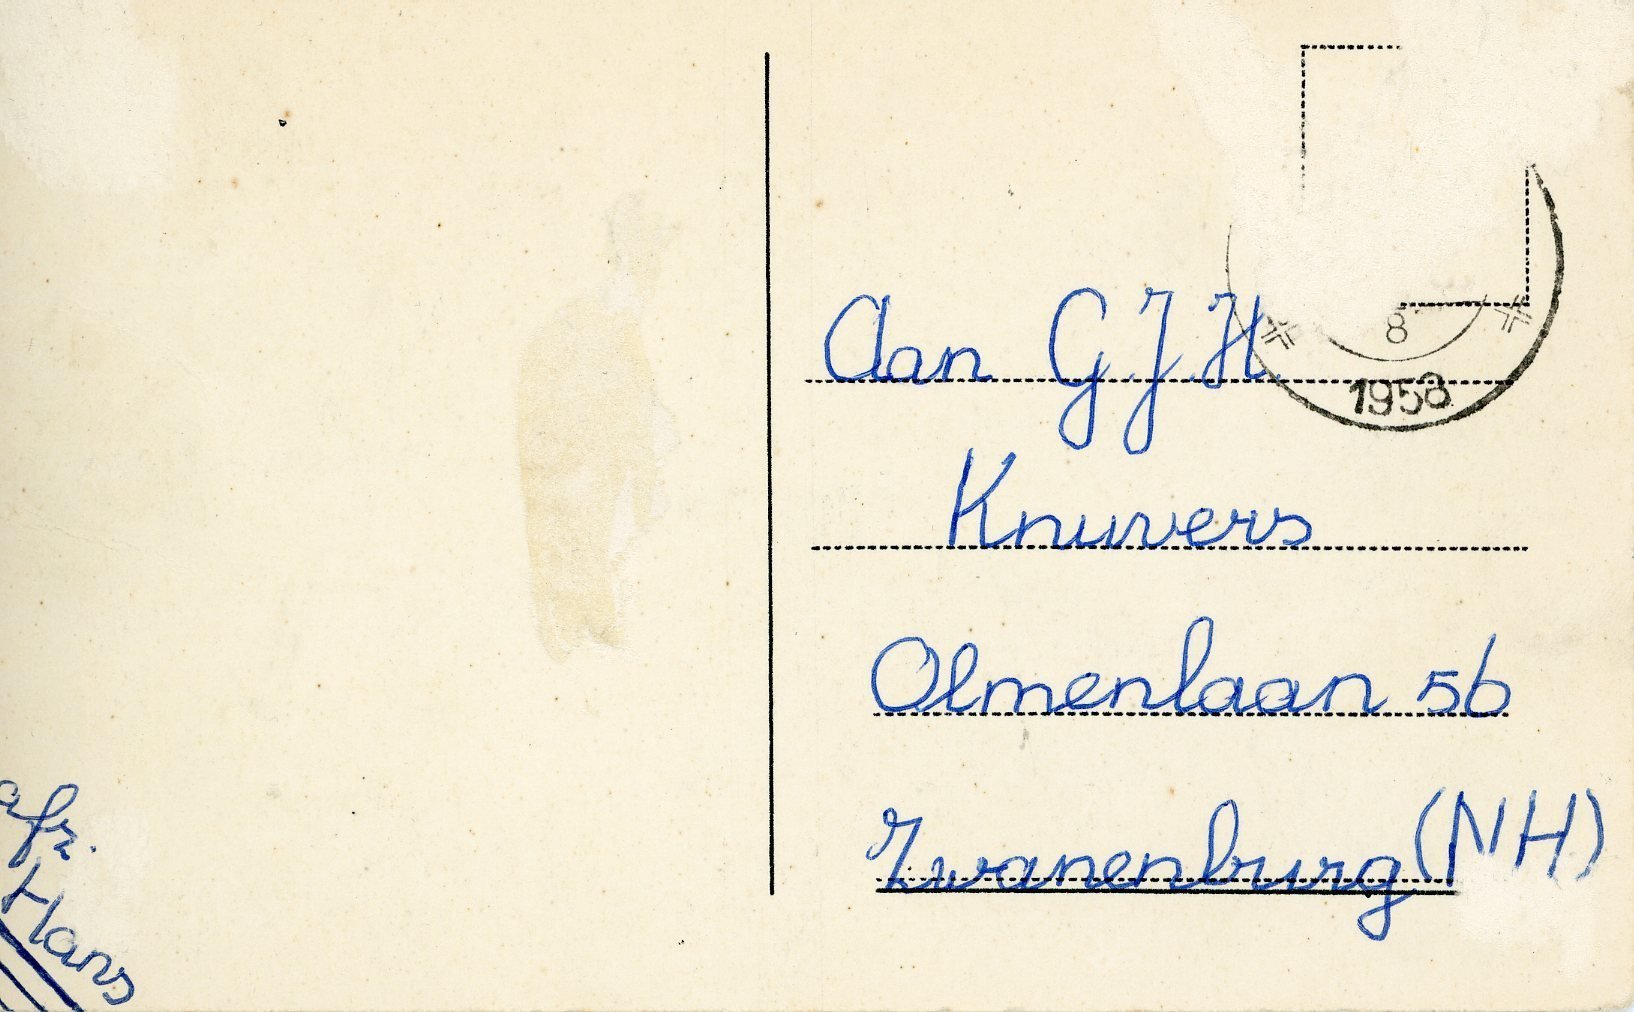 8
1958
Aan G.J.H.
Knuvers
Olmenlaan 56
Zwanenburg (NH)
afz.
Hans